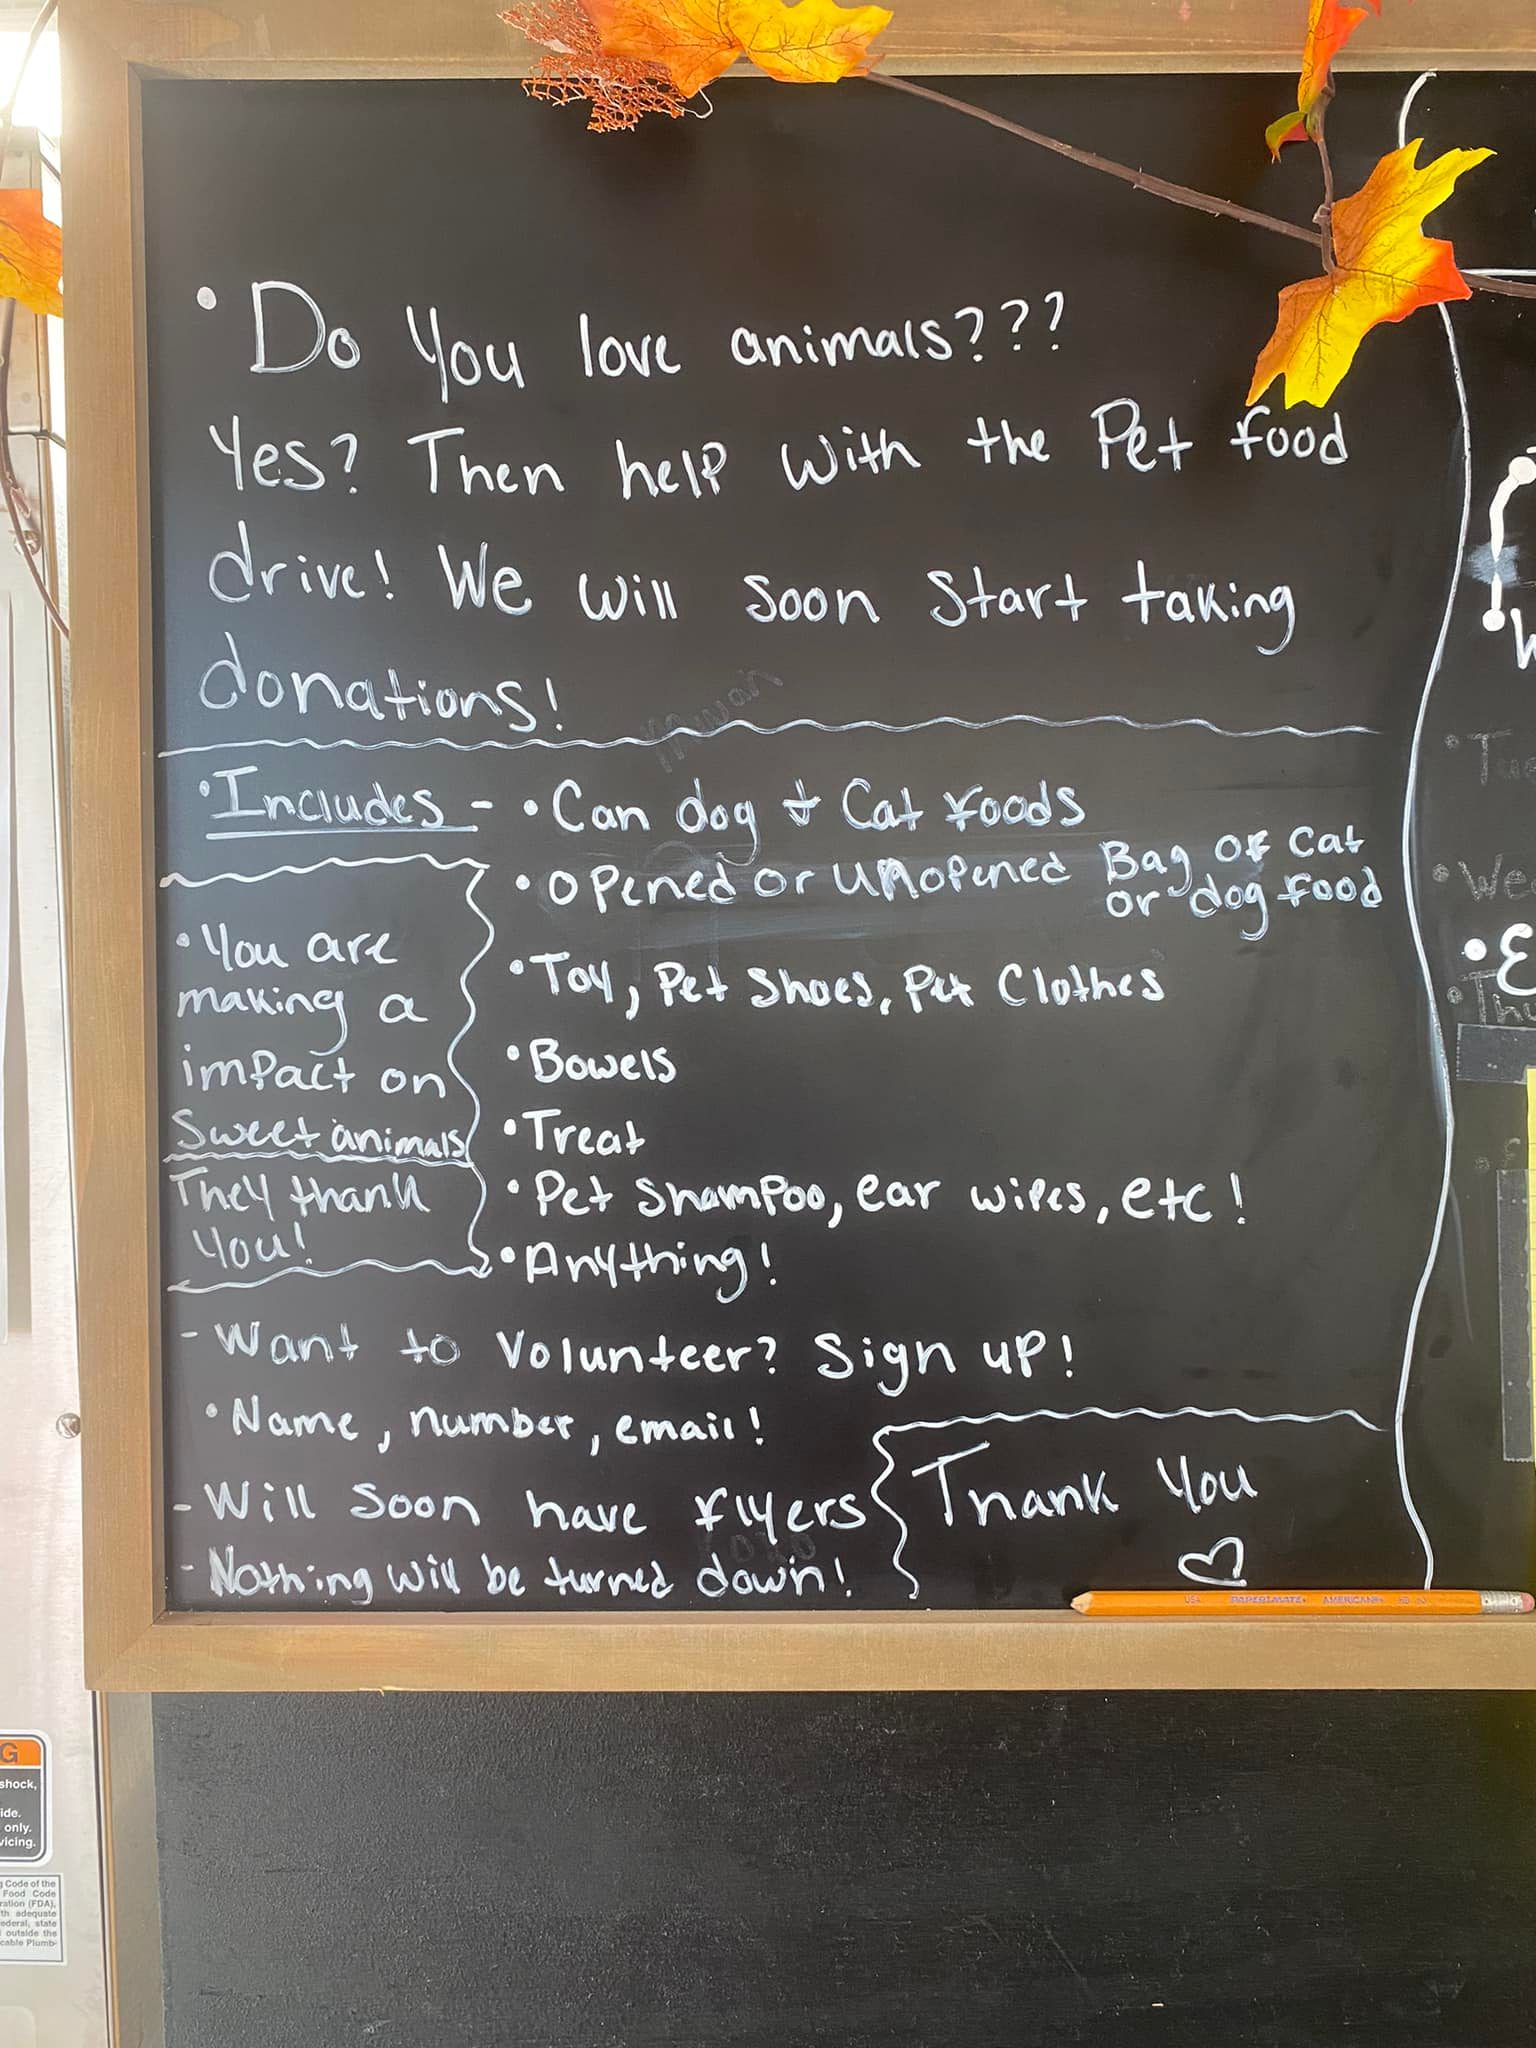 • Do You love animals???
Yes? Then help with the Pet food
drive! We will soon start taking
donations!
• Includes - • Can dog + Cat foods
• Opened or unopened Bag of Cat
or dog food
• Toy, Pet Shoes, Pet Clothes
• Bowels
• Treat
• Pet Shampoo, ear wipes, etc!
• Anything!
• You are
making a
impact on
Sweet animals
They thank
You!
- Want to Volunteer? Sign up!
• Name, number, email!
- Will soon have flyers
- Nothing will be turned down!
Thank You
USA PAPERMATE AMERICAN
• Tu
• We
• E
• Thu
W
G
shock,
ide.
only.
vicing.
g Code of the
Food Code
ration (FDA),
th adequate
ederal, state
outside the
cable Plumb-